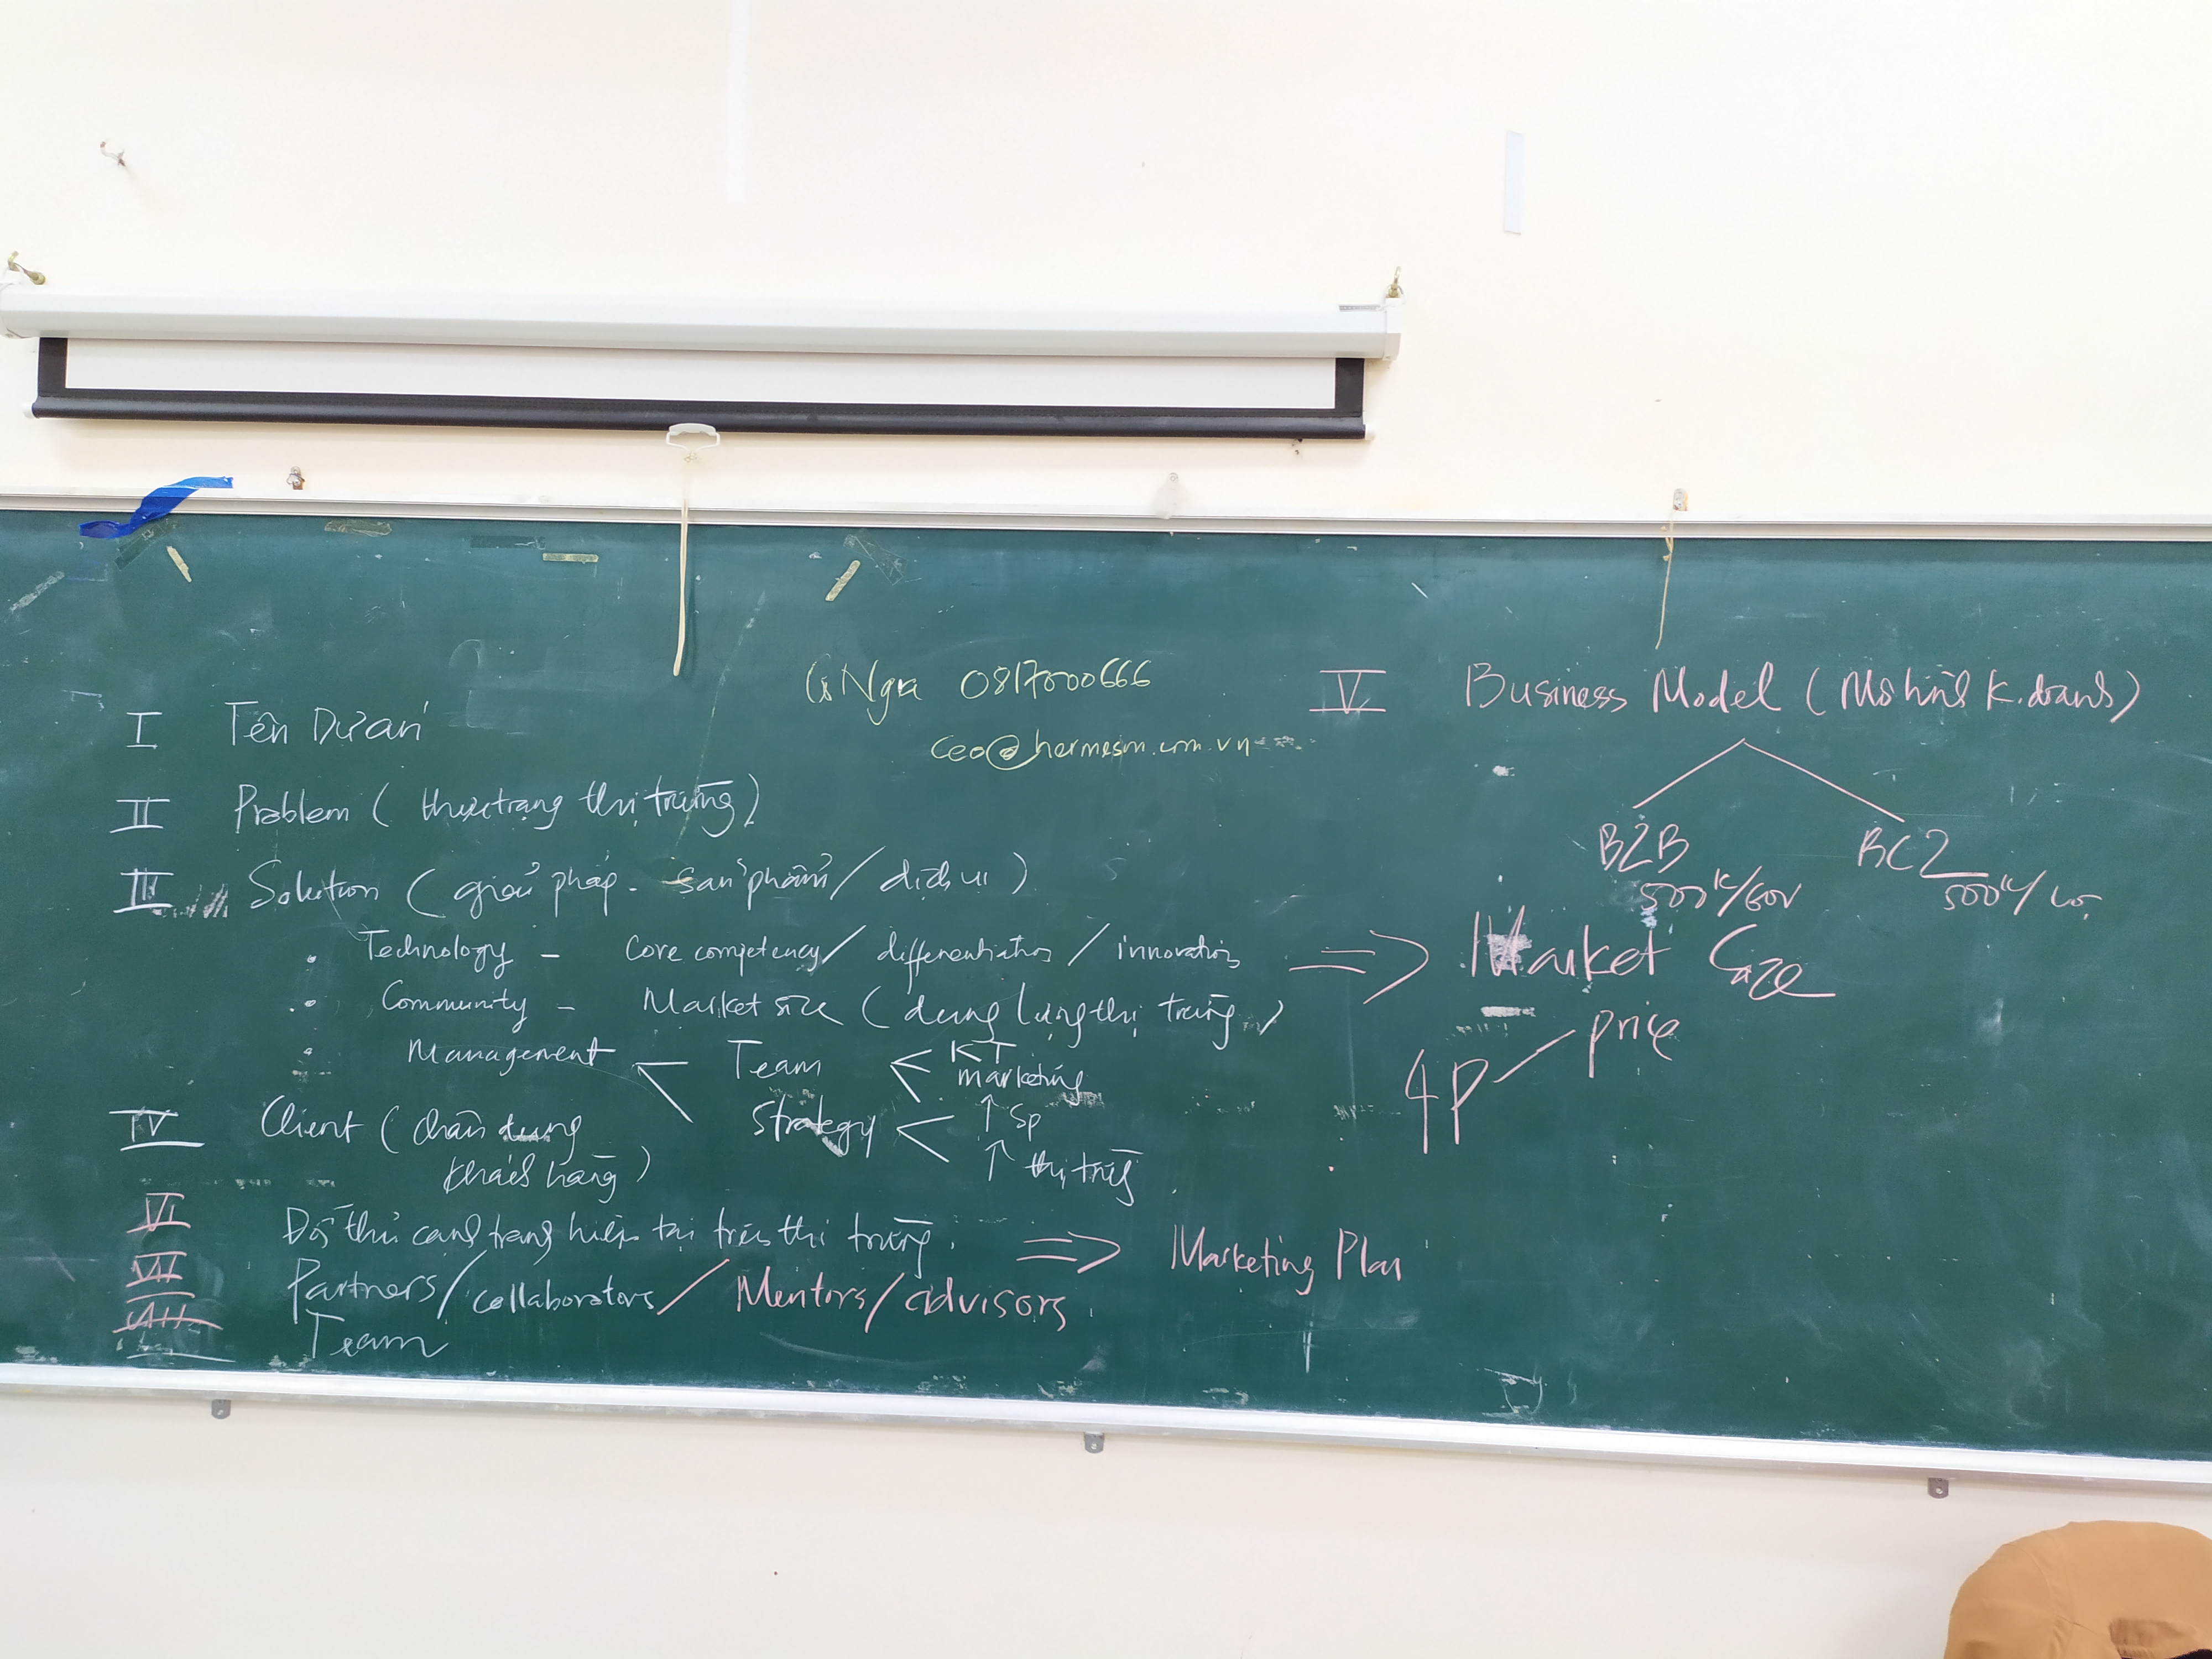 Cô Nga 0817000666
ceo@hermesm.com.vn
I Tên Dự án
II Problem ( thực trạng thị trường )
III Solution ( giải pháp - sản phẩm / dịch vụ )
• Technology - Core competency / differentiation / innovation
• Community - Market size ( dung lượng thị trường )
• Management < Team < KT
marketing
Strategy < ↑ sp
↑ thị trường
IV Client ( chân dung
khách hàng )
VI Đối thủ cạnh tranh hiện tại trên thị trường. => Marketing Plan
VII Partners / collaborators / Mentors / advisors
VIII Team
V Business Model ( Mô hình k.doanh )
B2B BC2
500k/ 500k/
=> Market Size
4P price